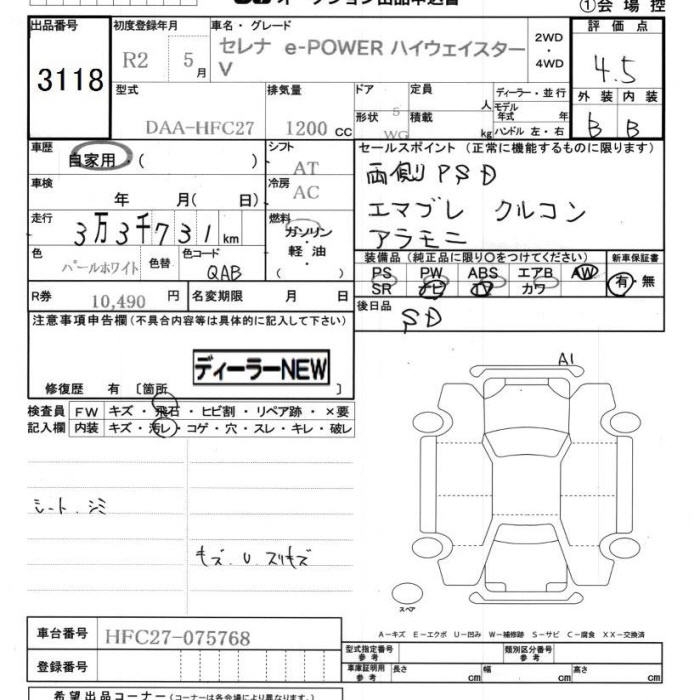 オークション出品申込書
①会場控
出品番号 初度登録年月 車名・グレード 評価点
3118 R2 5月 セレナ e-POWER ハイウェイスター 2WD・4WD 4.5
V
型式 排気量 ドア 定員 ディーラー・並行 外装 内装
DAA-HFC27 1200cc 5 人 モデル年式 年 B B
形状 WG 積載 kg ハンドル 左・右
車歴 自家用・( ) シフト AT セールスポイント (正常に機能するものに限ります)
両側PSD
車検 年 月(日) 冷房 AC エマブレ クルコン
アラモニ
走行 3万3千731km 燃料 ガソリン・軽油・( )
色 パールホワイト 色替 色コード QAB
装備品 (純正品に限り○をつけてください) 新車保証書
PS PW ABS エアB AW 有・無
SR ナビ カワ
R券 10,490円 名変期限 月 日
後日品 SD
注意事項申告欄(不具合内容等は具体的に記入して下さい)
ディーラーNEW
修復歴 有 〔箇所 〕
A1
検査員記入欄 FW キズ・飛石・ヒビ割・リペア跡・×要
内装 キズ・汚レ・コゲ・穴・スレ・キレ・破レ
シート.シミ
キズ.U.スリキズ
スペア
A-キズ E-エクボ U-凹み W-補修跡 S-サビ C-腐食 XX-交換済
車台番号 HFC27-075768
型式指定番号参考 類別区分番号参考
登録番号
車庫証明用参考 長さ cm 幅 cm 高さ cm
希望出品コーナー(コーナーは各会場により異なります。)